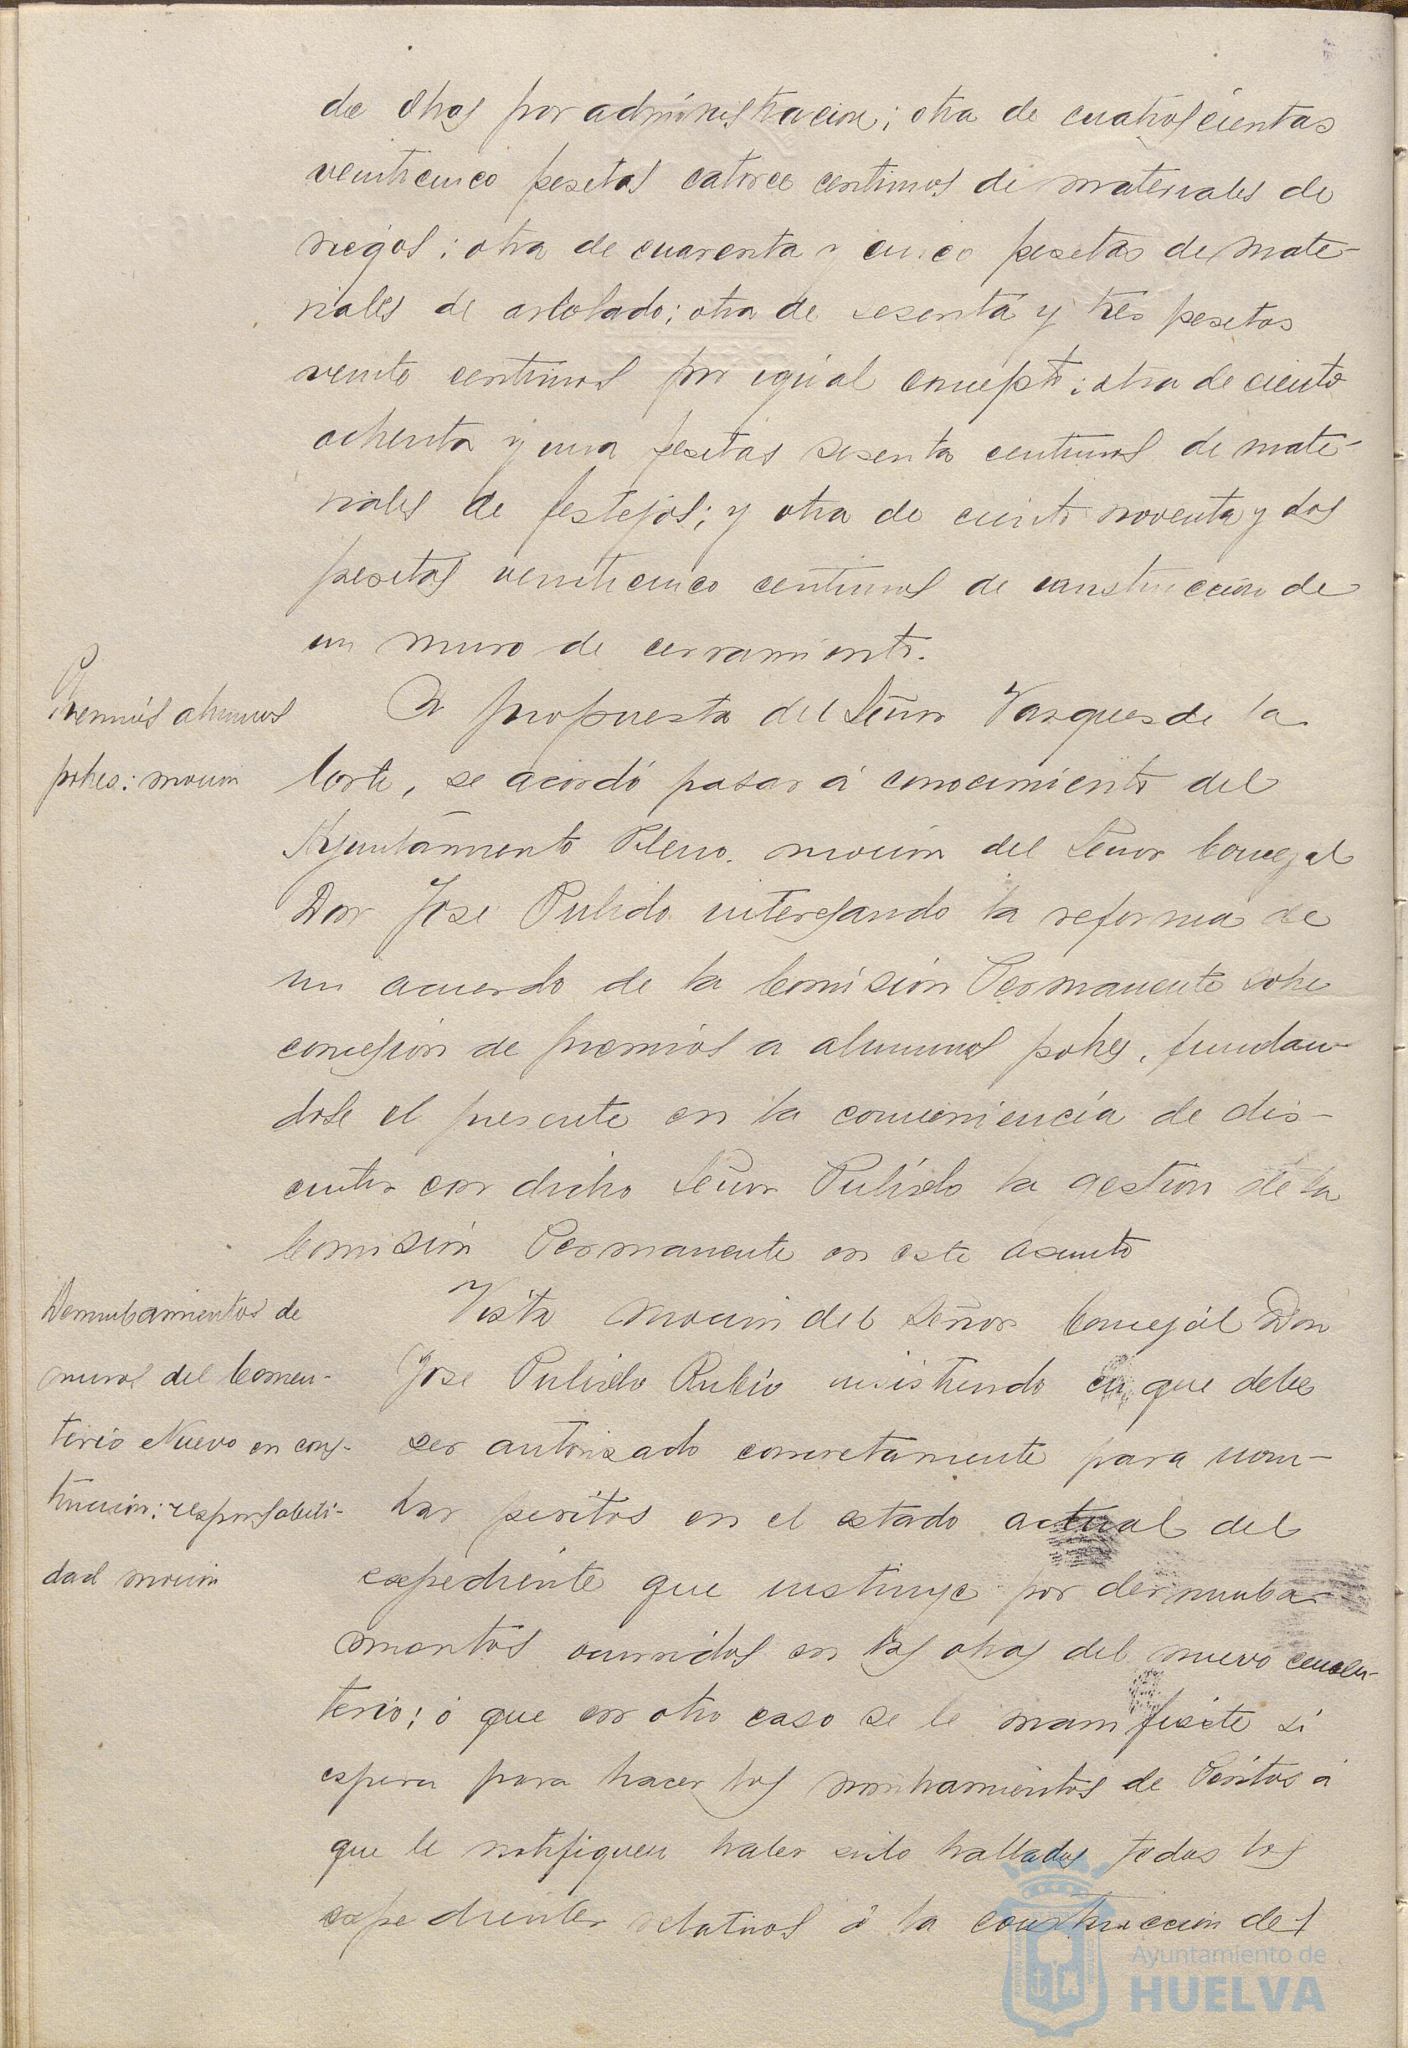 de obras por administracion; otra de cuatroscientas
veinticinco pesetas catorce centimos de materiales de
riegos; otra de cuarenta y cinco pesetas de mate-
riales de arbolado; otra de sesenta y tres pesetas
veinte centimos por igual concepto; otra de ciento
ochenta y una pesetas sesenta centimos de mate-
riales de festejos; y otra de ciento noventa y dos
pesetas veinticinco centimos de construccion de
un muro de cerramiento.
Premios alumnos
pobres: mocion
A propuesta del Señor Vazquez de la
Corte, se acordó pasar á conocimiento del
Ayuntamiento Pleno mocion del Señor Concejal
Don Jose Pulido interesando la reforma de
un acuerdo de la Comisión Permanente sobre
concesion de premios a alumnos pobres, fundan-
dose el presente en la conveniencia de dis-
cutir con dicho Señor Pulido la gestion de la
Comisión Permanente en este asunto
Derrumbamientos de
muros del Cemen-
terio Nuevo en cons-
truccion: responsabili-
dad mocion
Vista mocion del Señor Concejal Don
Jose Pulido Rubio insistiendo en que debe
ser autorizado concretamente para nom-
brar peritos en el estado actual del
expediente que instruye por derrumba-
mientos ocurridos en las obras del nuevo cemen-
terio; ó que en otro caso se le manifieste si
espera para hacer los nombramientos de Peritos á
que le notifiquen haber sido hallados todos los
expedientes relativos á la construccion del
Ayuntamiento de
HUELVA